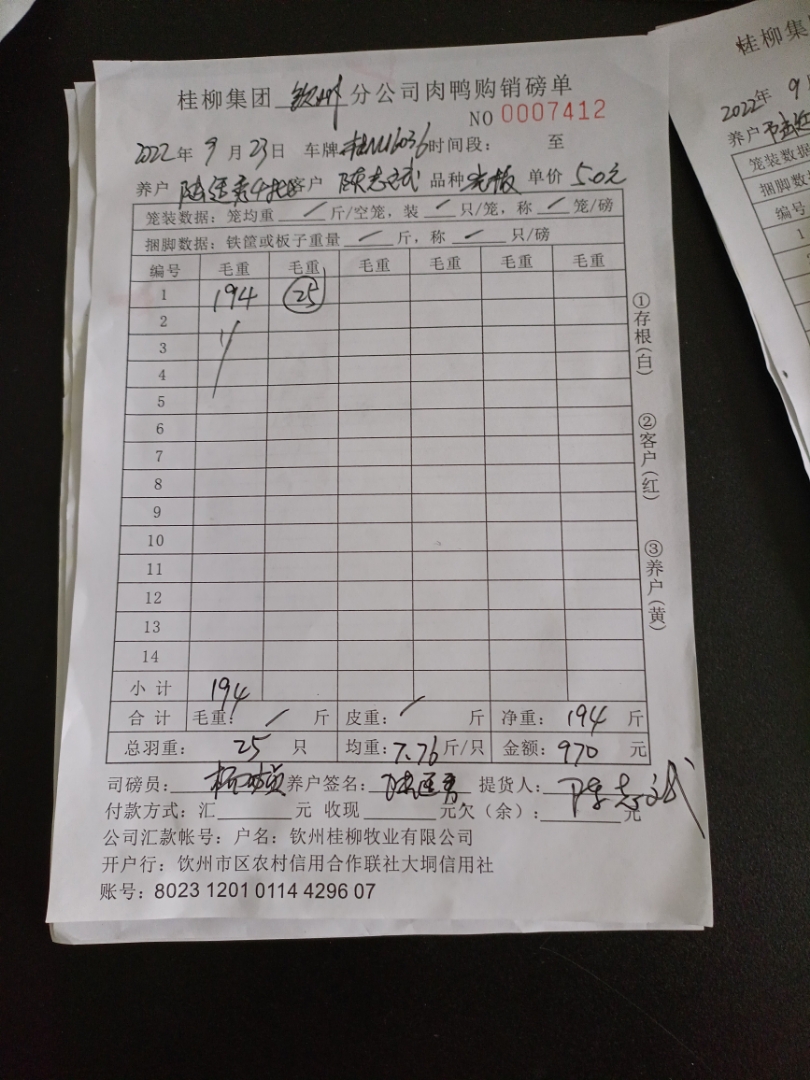 桂柳集团 钦州 分公司肉鸭购销磅单
NO 0007412
2022年 9月 23日 车牌 16036 时间段: 至
养户 客户 陈志武 品种 光板 单价 5.0元
笼装数据: 笼均重 / 斤/空笼, 装 / 只/笼, 称 / 笼/磅
捆脚数据: 铁筐或板子重量 / 斤, 称 / 只/磅
编号 毛重 毛重 毛重 毛重 毛重 毛重
1 194 25
2
3
4
5
6
7
8
9
10
11
12
13
14
小计 194
合计 毛重: / 斤 皮重: / 斤 净重: 194 斤
总羽重: 25 只 均重: 7.76 斤/只 金额: 970 元
司磅员: 养户签名: 提货人: 陈志武
付款方式: 汇 元 收现 元欠(余): 元
公司汇款帐号: 户名: 钦州桂柳牧业有限公司
开户行: 钦州市区农村信用合作联社大垌信用社
账号: 8023 1201 0114 4296 07
①存根(白)
②客户(红)
③养户(黄)
桂柳集
2022年 9月
养户
笼装数据
捆脚数据
编号
1